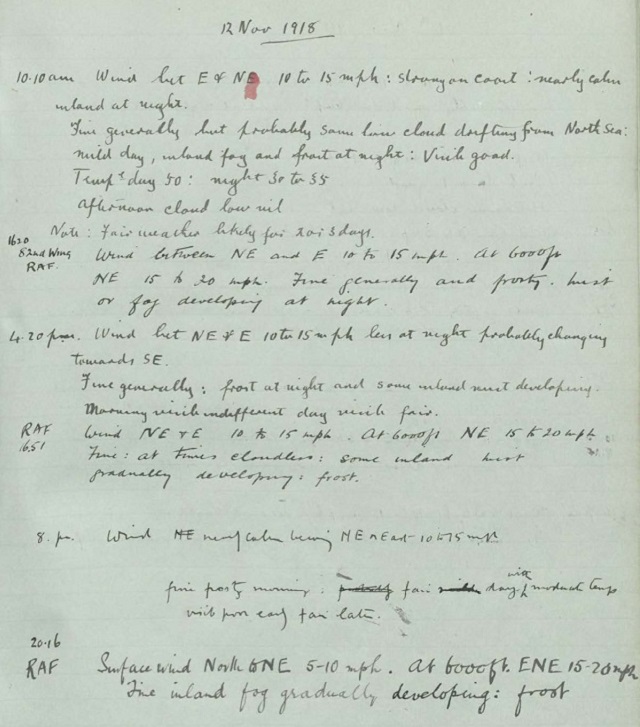 12 Nov 1918
10.10 am Wind bet E & NE 10 to 15 mph : strong on coast : nearly calm
inland at night.
Fine generally but probably some low cloud drifting from North Sea:
mild day, inland fog and frost at night : Visib good.
Temps day 50 : night 30 to 35
Afternoon cloud low nil
Note : Fair weather likely for 2 or 3 days.
1620
82nd Wing Wind between NE and E 10 to 15 mph. At 6000ft
RAF. NE 15 to 20 mph. Fine generally and frosty. Mist
or fog developing at night.
4.20 pm. Wind bet NE & E 10 to 15 mph less at night probably changing
towards SE.
Fine generally : frost at night and some inland mist developing.
Morning visib indifferent day visib fair.
RAF Wind NE & E 10 to 15 mph. At 6000ft NE 15 to 20 mph.
1651 Fine : at times cloudless : some inland mist
gradually developing : frost.
8. pm. Wind NE nearly calm being NE or East 10 to 15 mph
fine frosty morning : fair day with moderate temps
visib poor early fair later.
20.16
RAF Surface wind North to NE 5-10 mph. At 6000ft. ENE 15-20 mph
Fine inland fog gradually developing : frost